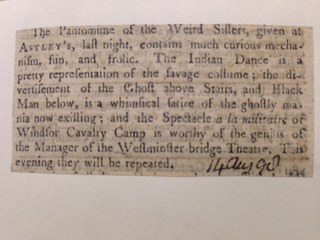 The Pantomime of the Weird Sisters, given at
ASTLEY'S, last night, contains much curious mecha-
nism, fun, and frolic. The Indian Dance is a
pretty representation of the savage costume; the di-
vertisement of the Ghost above Stairs, and Black
Man below, is a whimsical satire of the ghostly ma-
nia now existing; and the Spectacle a la militaire of
Windsor Cavalry Camp is worthy of the genius of
the Manager of the Westminster-bridge Theatre. This
evening they will be repeated. 14 Aug 98